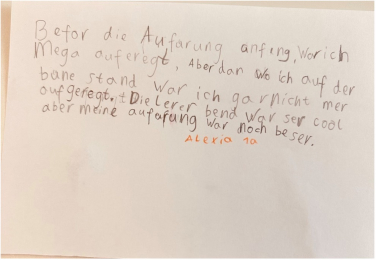 Befor die Aufarung anfing, War ich
Mega auferegt, Aber dan wo ich auf der
bane stand war ich garnicht mer
aufgeregt. Die Lerer bend war ser cool
aber meine aufarung war noch beser.
Alexia 1a